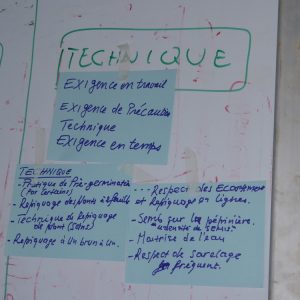 TECHNIQUE
Exigence en travail
Exigence de Précaution
Technique
Exigence en temps
TECHNIQUE
- Pratique de Pré-germination
(par certains)
- Repiquage des plants à feuille
- Technique de Repiquage
de plant (saine)
- Repiquage à un brun à un.
- - - Respect des Ecartement
et Repiquage en lignes.
- Semis sur la pépinière.
densité de semis
- Maitrise de l'eau
- Respect de sarclage
fréquent.